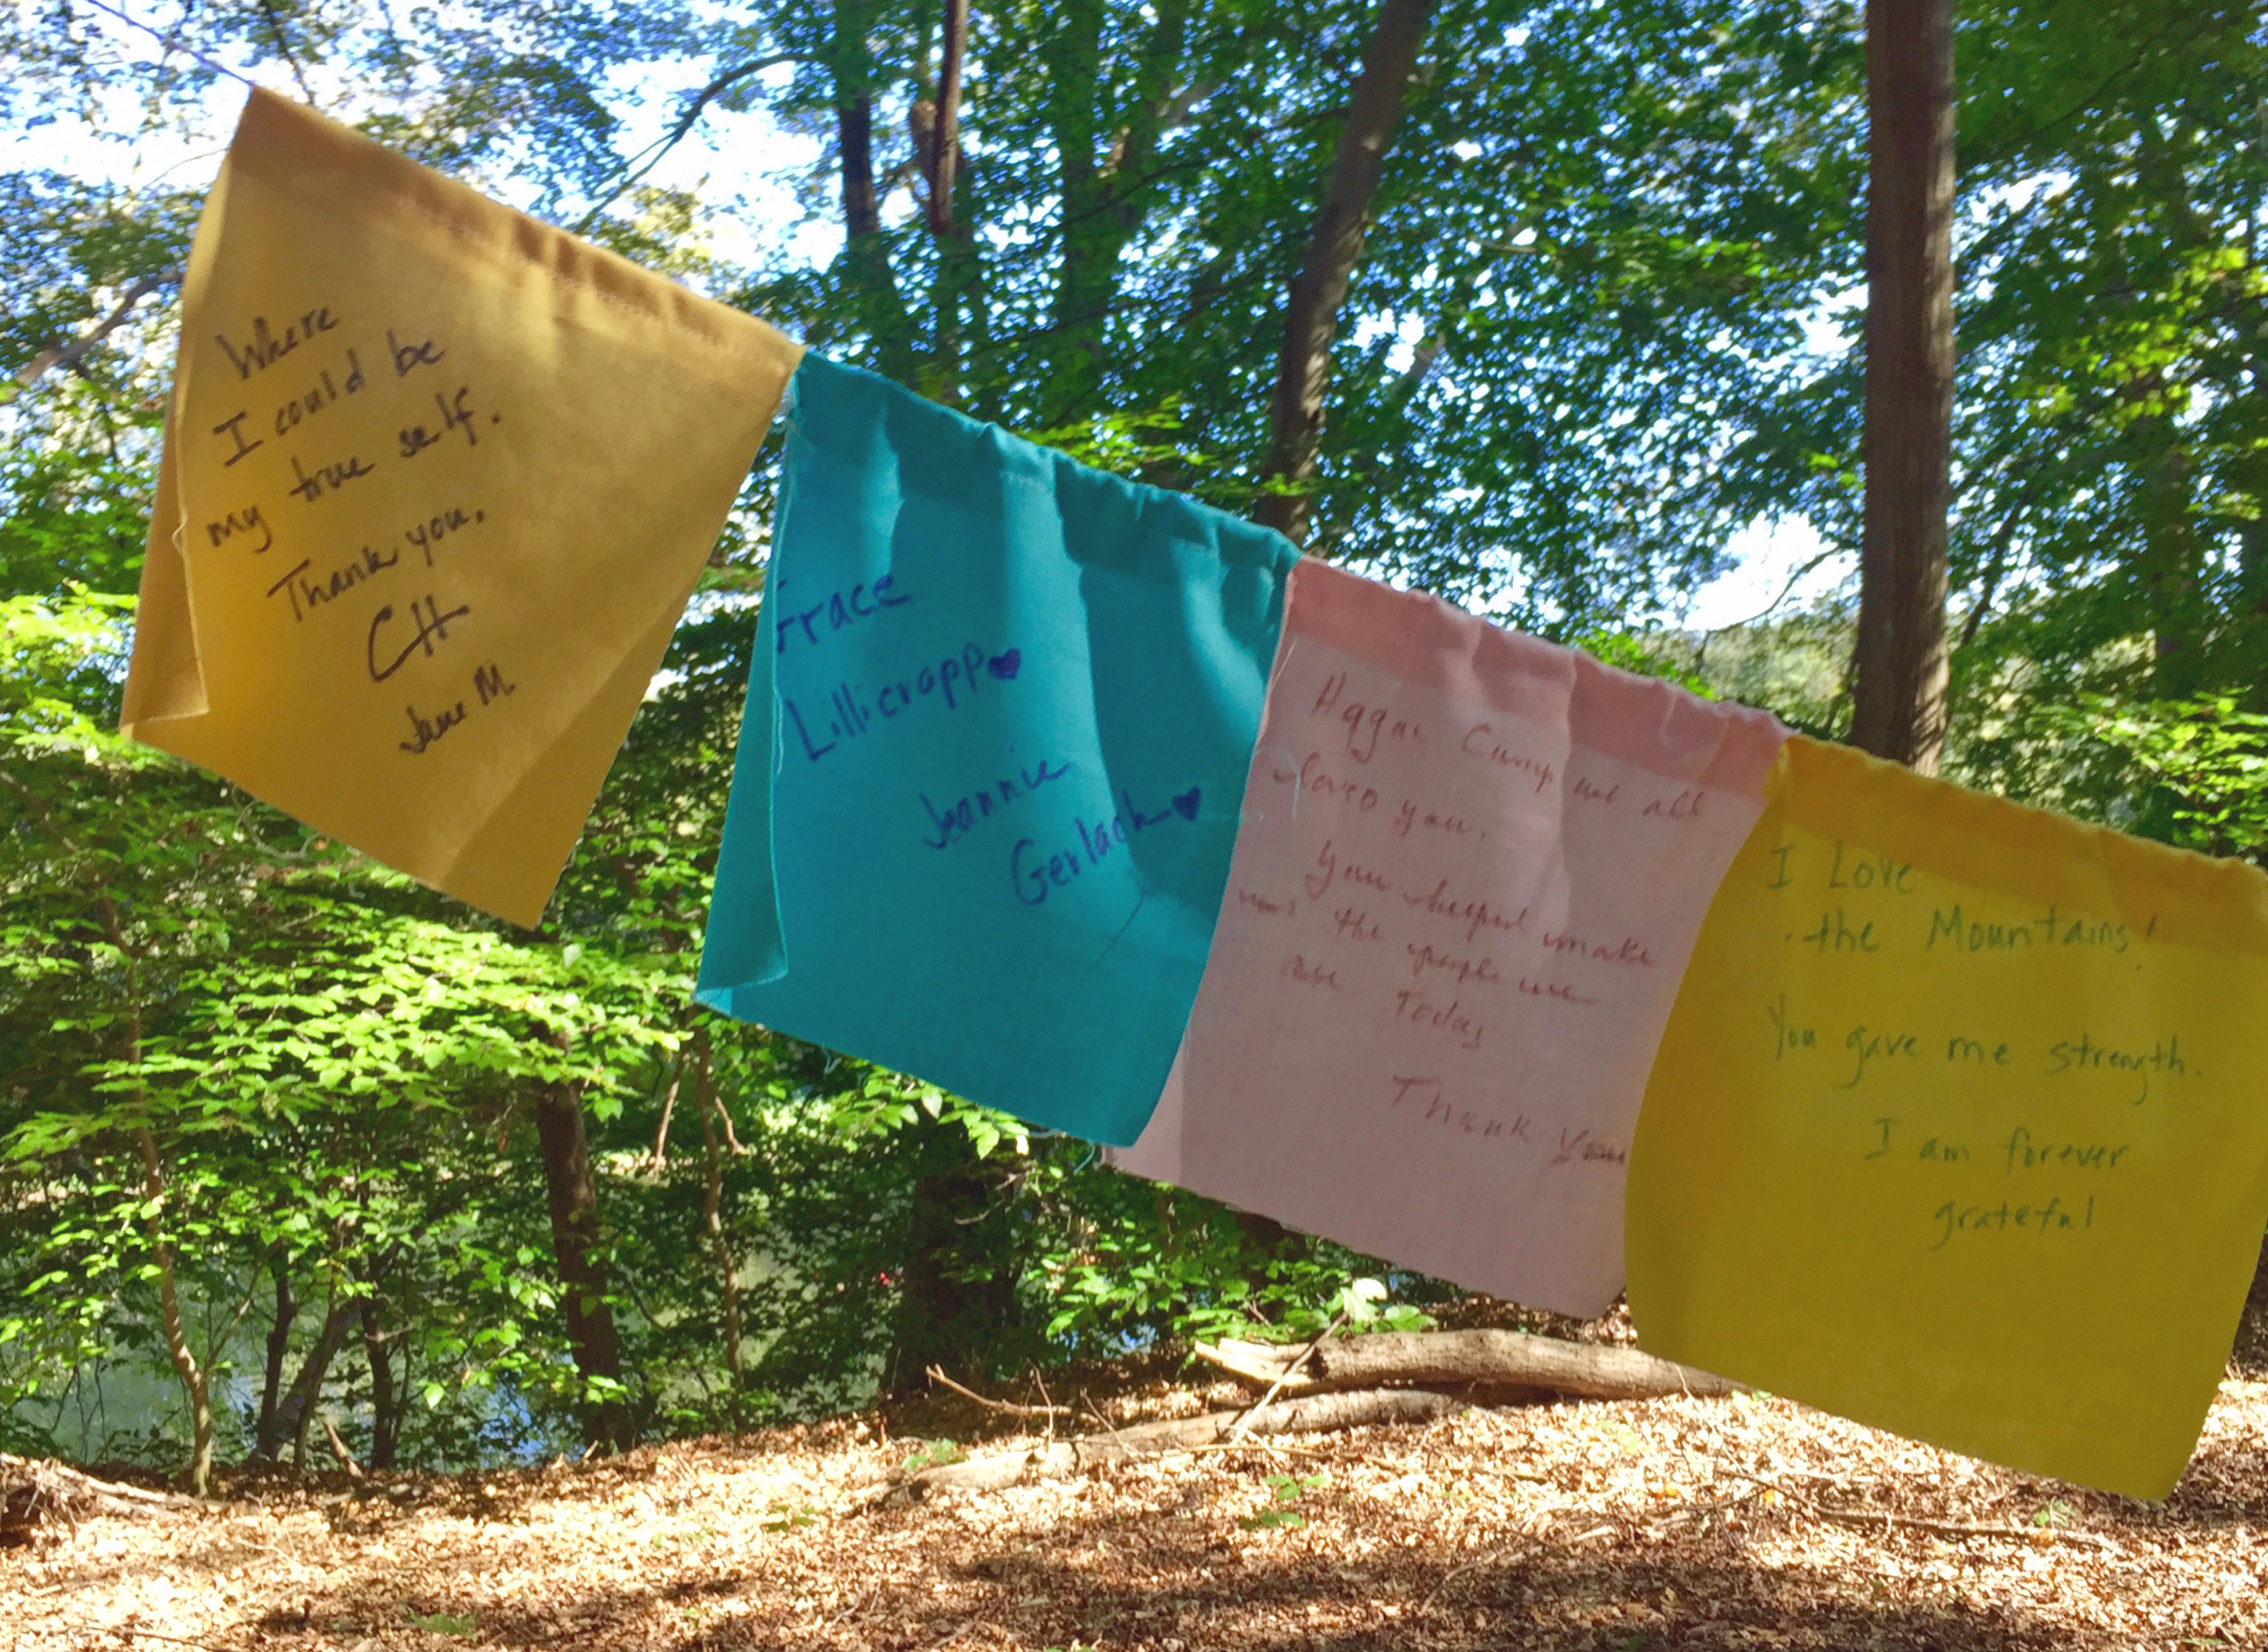 Where
I could be
my true self.
Thank you.
CH
Jane M.
Grace
Lillicrapp
Jeannie
Gerlach
Camp we all
love you.
You helped make
the people we
are Today
Thank You
I Love
the Mountains!
You gave me strength.
I am forever
grateful